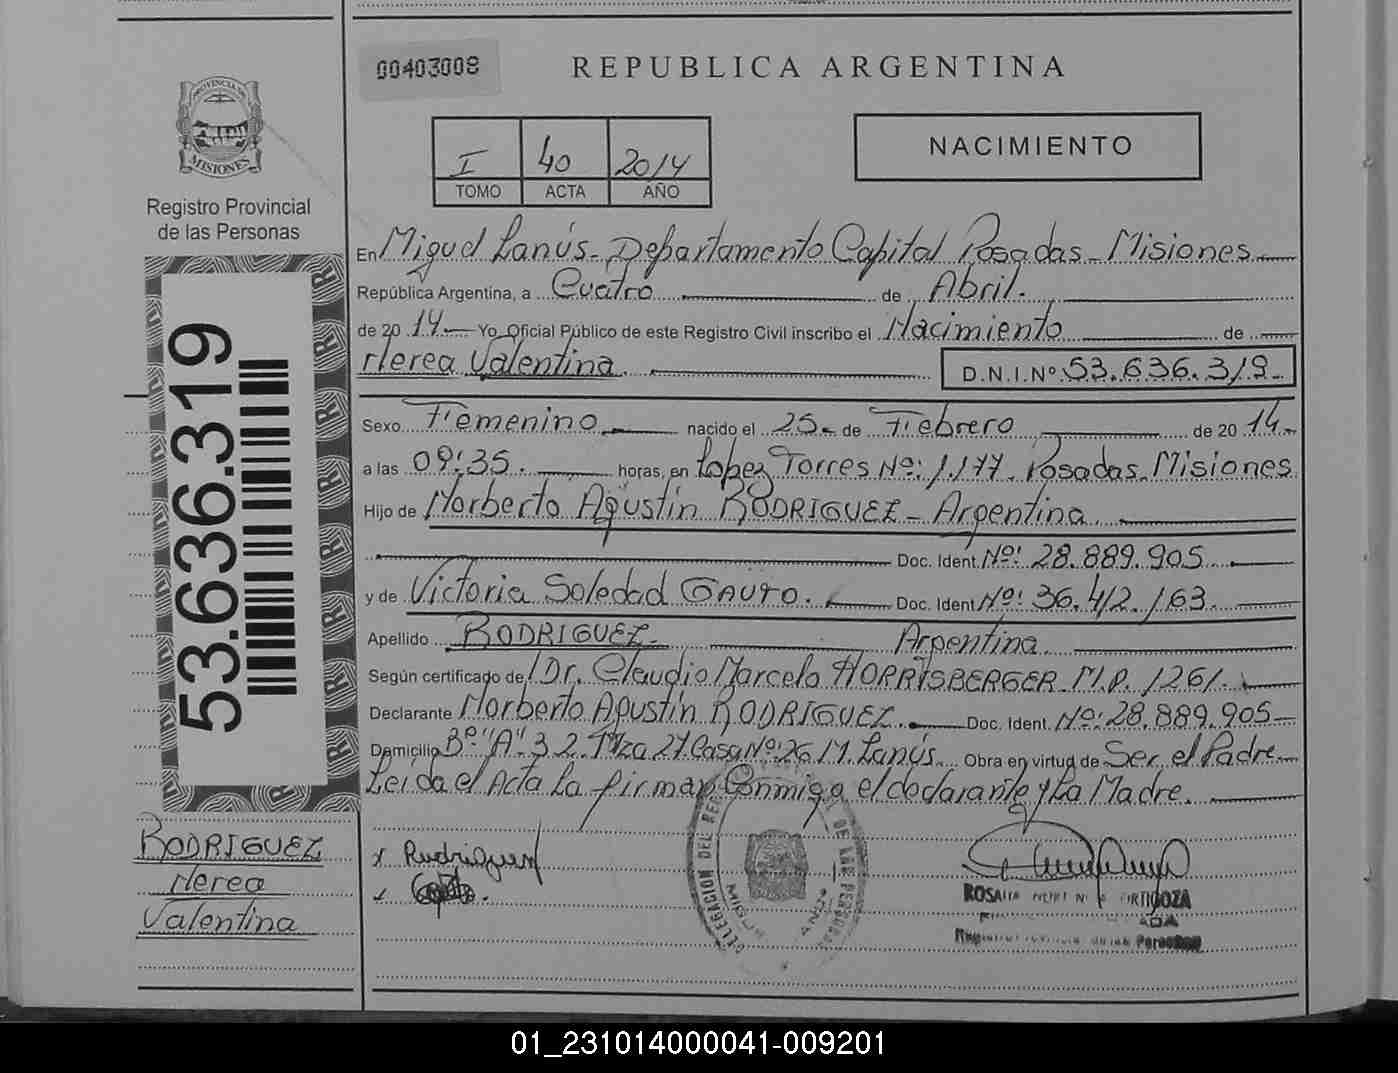 00403008
REPUBLICA ARGENTINA
PROVINCIA DE
MISIONES
Registro Provincial
de las Personas
I 40 2014
TOMO ACTA AÑO
NACIMIENTO
En Miguel Lanús - Departamento Capital Posadas - Misiones
República Argentina, a Cuatro de Abril.
de 20 14 Yo Oficial Público de este Registro Civil inscribo el Nacimiento de
Nerea Valentina. D.N.I.Nº 53.636.319
53.636.319
Sexo Femenino nacido el 25 de Febrero de 20 14
a las 09:35. horas, en Lopez Torres Nº: 1.177. Posadas. Misiones
Hijo de Norberto Agustín RODRIGUEZ - Argentina.
Doc. Ident. Nº: 28.889.905
y de Victoria Soledad GAUTO. Doc. Ident Nº: 36.412.163.
Apellido RODRIGUEZ Argentina.
Según certificado de Dr. Claudio Marcelo HORRISBERGER M.P. 1261.
Declarante Norberto Agustín RODRIGUEZ. Doc. Ident. Nº: 28.889.905
Domicilio Bº "A" 3.2. Mza 27. Casa Nº 26 M. Lanús. Obra en virtud de Ser el Padre
Leida el Acta La firman Conmigo el declarante y La Madre.
RODRIGUEZ
Nerea
Valentina
x Rodriguez
DELEGACION DEL DE LAS PERSONAS
ROSALIA ORTIGOZA
de las Personas
01_231014000041-009201